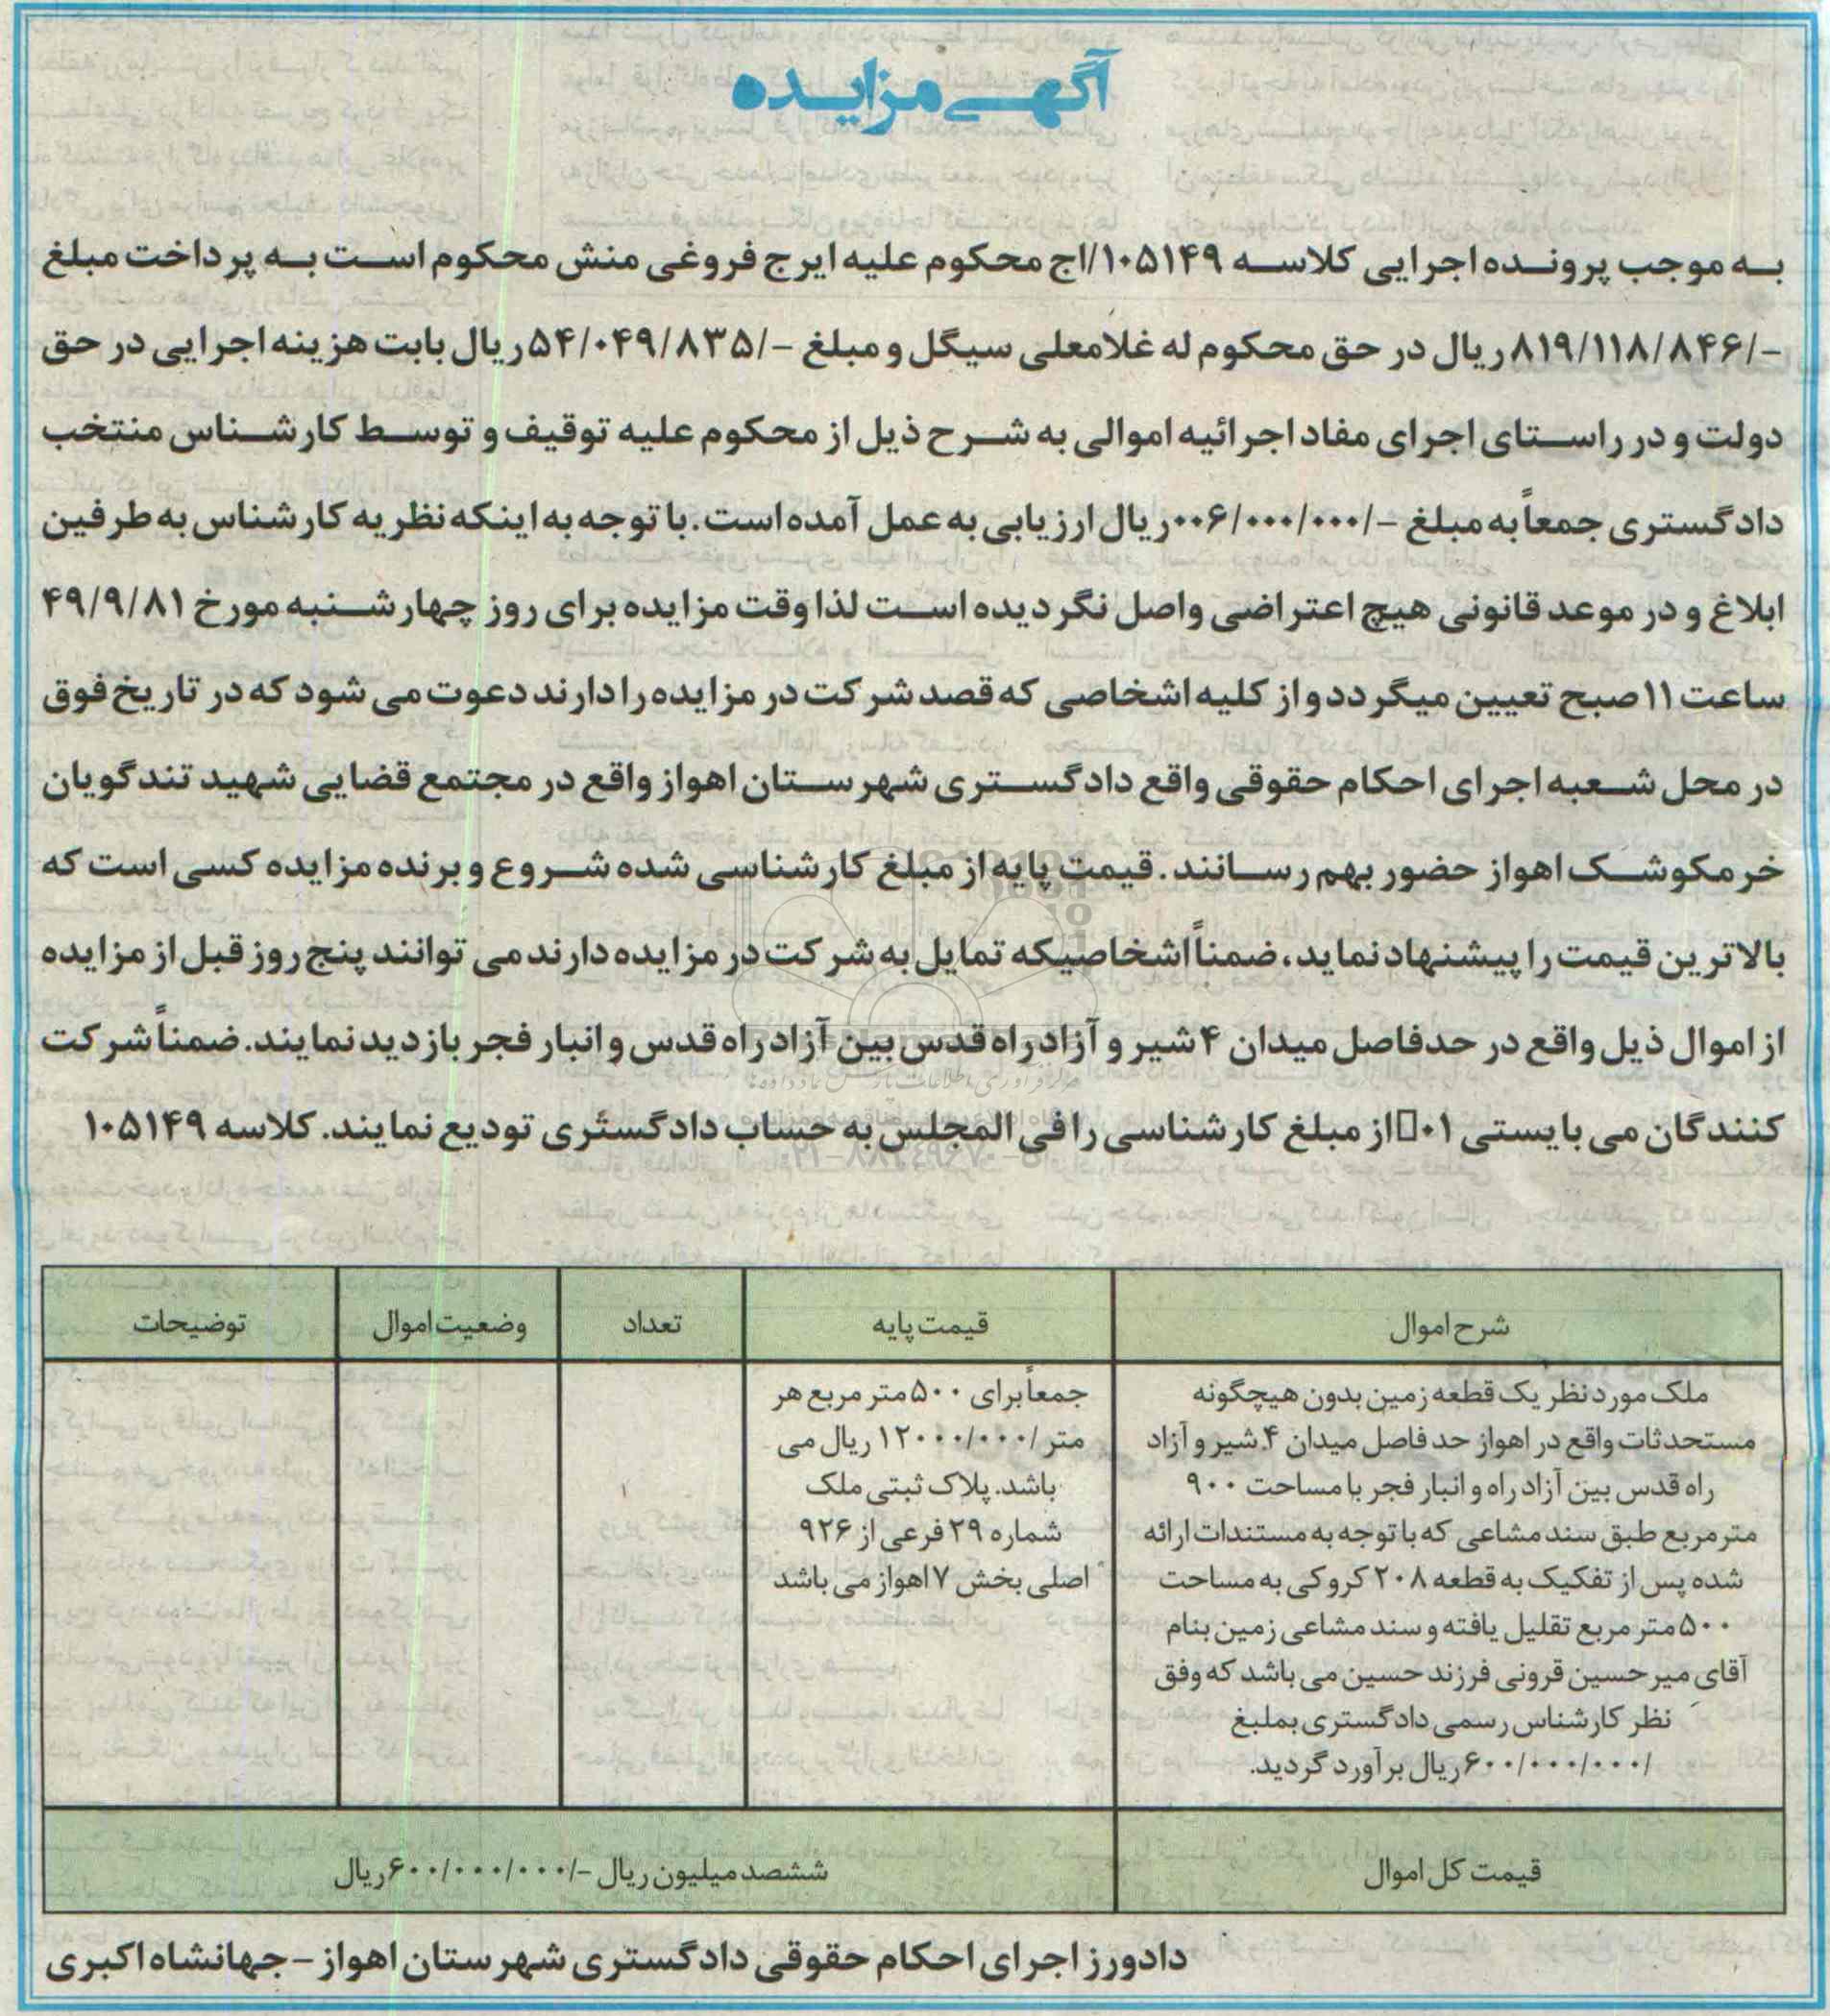 آگهی مزایده
به موجب پرونده اجرایی کلاسه ۱۰۵۱۴۹/اج محکوم علیه ایرج فروغی منش محکوم است به پرداخت مبلغ
-/۸۱۹/۱۱۸/۸۴۶ ریال در حق محکوم له غلامعلی سیگل و مبلغ -/۵۴/۰۴۹/۸۳۵ ریال بابت هزینه اجرایی در حق
دولت و در راستای اجرای مفاد اجرائیه اموالی به شرح ذیل از محکوم علیه توقیف و توسط کارشناس منتخب
دادگستری جمعاً به مبلغ -/۰۰۶/۰۰۰/۰۰۰ ریال ارزیابی به عمل آمده است. با توجه به اینکه نظریه کارشناس به طرفین
ابلاغ و در موعد قانونی هیچ اعتراضی واصل نگردیده است لذا وقت مزایده برای روز چهارشنبه مورخ ۴۹/۹/۸۱
ساعت ۱۱ صبح تعیین میگردد و از کلیه اشخاصی که قصد شرکت در مزایده را دارند دعوت می شود که در تاریخ فوق
در محل شعبه اجرای احکام حقوقی واقع دادگستری شهرستان اهواز واقع در مجتمع قضایی شهید تندگویان
خرمکوشک اهواز حضور بهم رسانند. قیمت پایه از مبلغ کارشناسی شده شروع و برنده مزایده کسی است که
بالاترین قیمت را پیشنهاد نماید، ضمناً اشخاصیکه تمایل به شرکت در مزایده دارند می توانند پنج روز قبل از مزایده
از اموال ذیل واقع در حدفاصل میدان ۴ شیر و آزادراه قدس بین آزادراه قدس و انبار فجر بازدید نمایند. ضمناً شرکت
کنندگان می بایستی ۰۱□ از مبلغ کارشناسی را فی المجلس به حساب دادگستری تودیع نمایند. کلاسه ۱۰۵۱۴۹
شرح اموال
قیمت پایه
تعداد
وضعیت اموال
توضیحات
ملک مورد نظر یک قطعه زمین بدون هیچگونه
مستحدثات واقع در اهواز حد فاصل میدان ۴ شیر و آزاد
راه قدس بین آزاد راه و انبار فجر با مساحت ۹۰۰
متر مربع طبق سند مشاعی که با توجه به مستندات ارائه
شده پس از تفکیک به قطعه ۲۰۸ کروکی به مساحت
۵۰۰ متر مربع تقلیل یافته و سند مشاعی زمین بنام
آقای میرحسین قرونی فرزند حسین می باشد که وفق
نظر کارشناس رسمی دادگستری بملبغ
/۶۰۰/۰۰۰/۰۰۰ ریال برآورد گردید.
جمعاً برای ۵۰۰ متر مربع هر
متر /۱۲۰۰۰/۰۰۰ ریال می
باشد. پلاک ثبتی ملک
شماره ۲۹ فرعی از ۹۲۶
اصلی بخش ۷ اهواز می باشد
۱
قیمت کل اموال
ششصد میلیون ریال -/۶۰۰/۰۰۰/۰۰۰ ریال
دادورز اجرای احکام حقوقی دادگستری شهرستان اهواز - جهانشاه اکبری